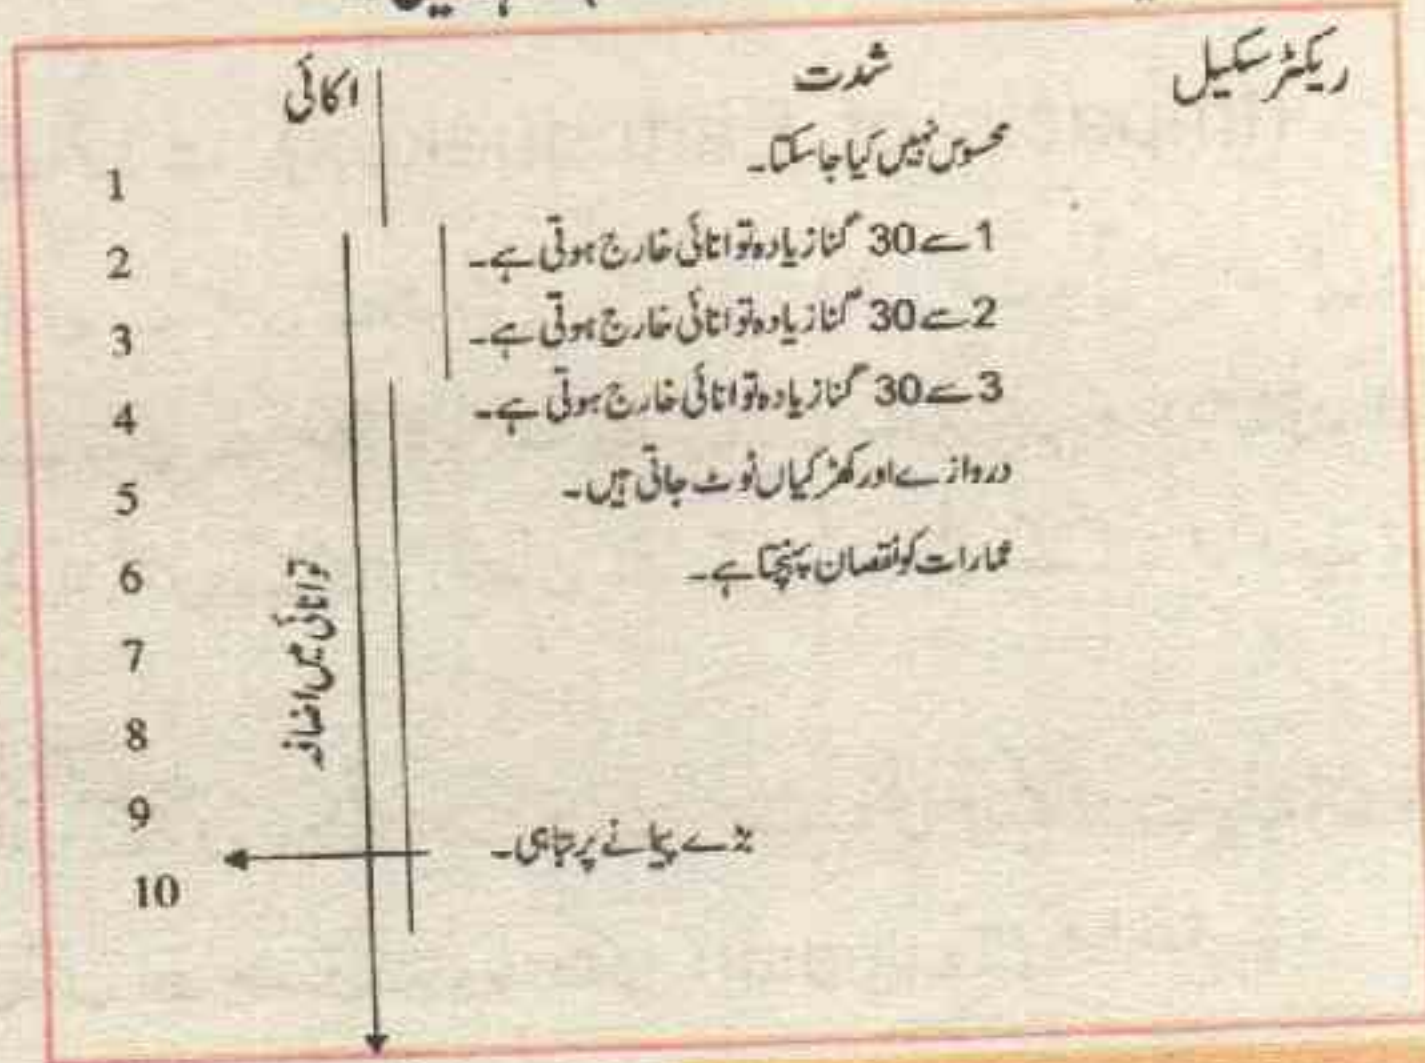 ریکٹر سکیل شدت اکائی
محسوس نہیں کیا جا سکتا۔ 1
1 سے 30 گنا زیادہ توانائی خارج ہوتی ہے۔ 2
2 سے 30 گنا زیادہ توانائی خارج ہوتی ہے۔ 3
3 سے 30 گنا زیادہ توانائی خارج ہوتی ہے۔ 4
دروازے اور کھڑکیاں ٹوٹ جاتی ہیں۔ 5
عمارات کو نقصان پہنچتا ہے۔ 6
توانائی میں اضافہ
7
8
9
بڑے پیمانے پر تباہی۔
10